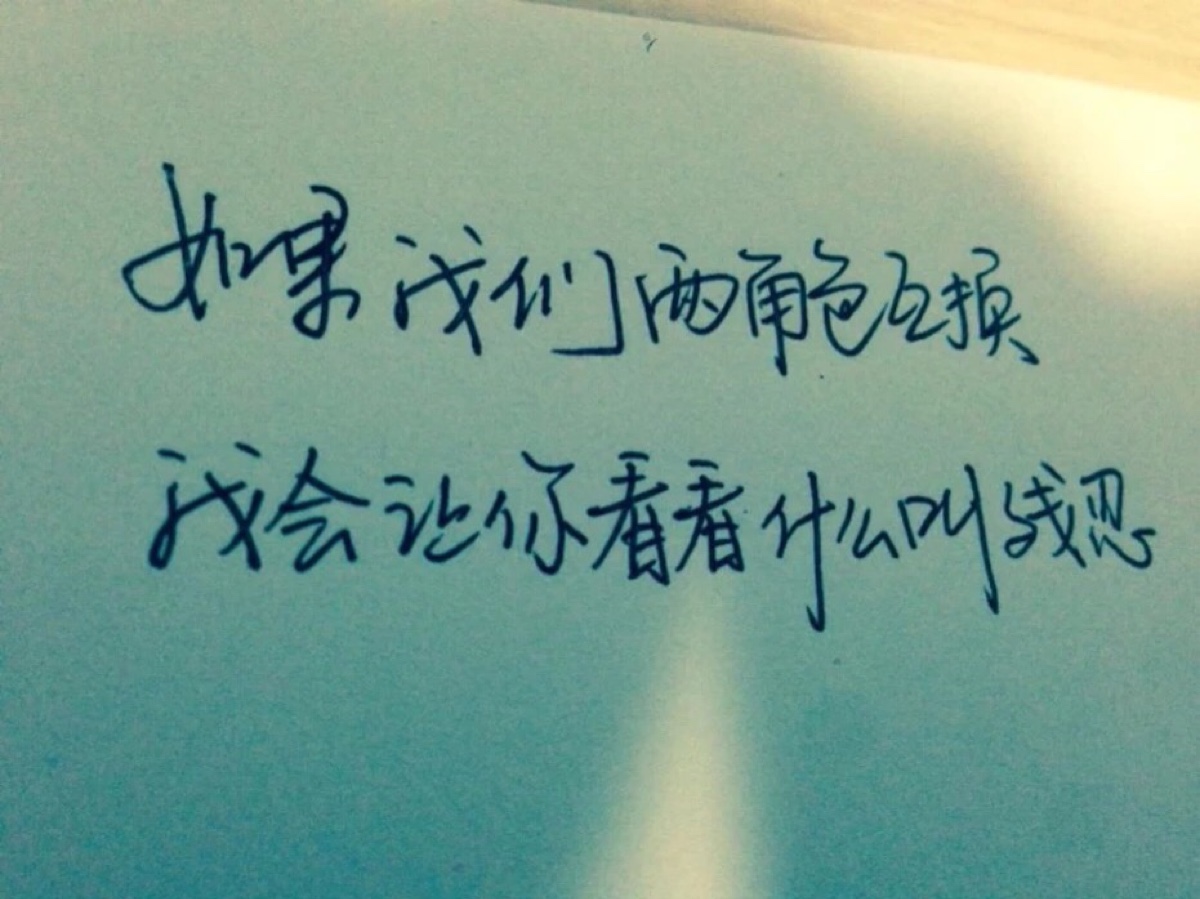 如果我们两角色互换
我会让你看看什么叫残忍